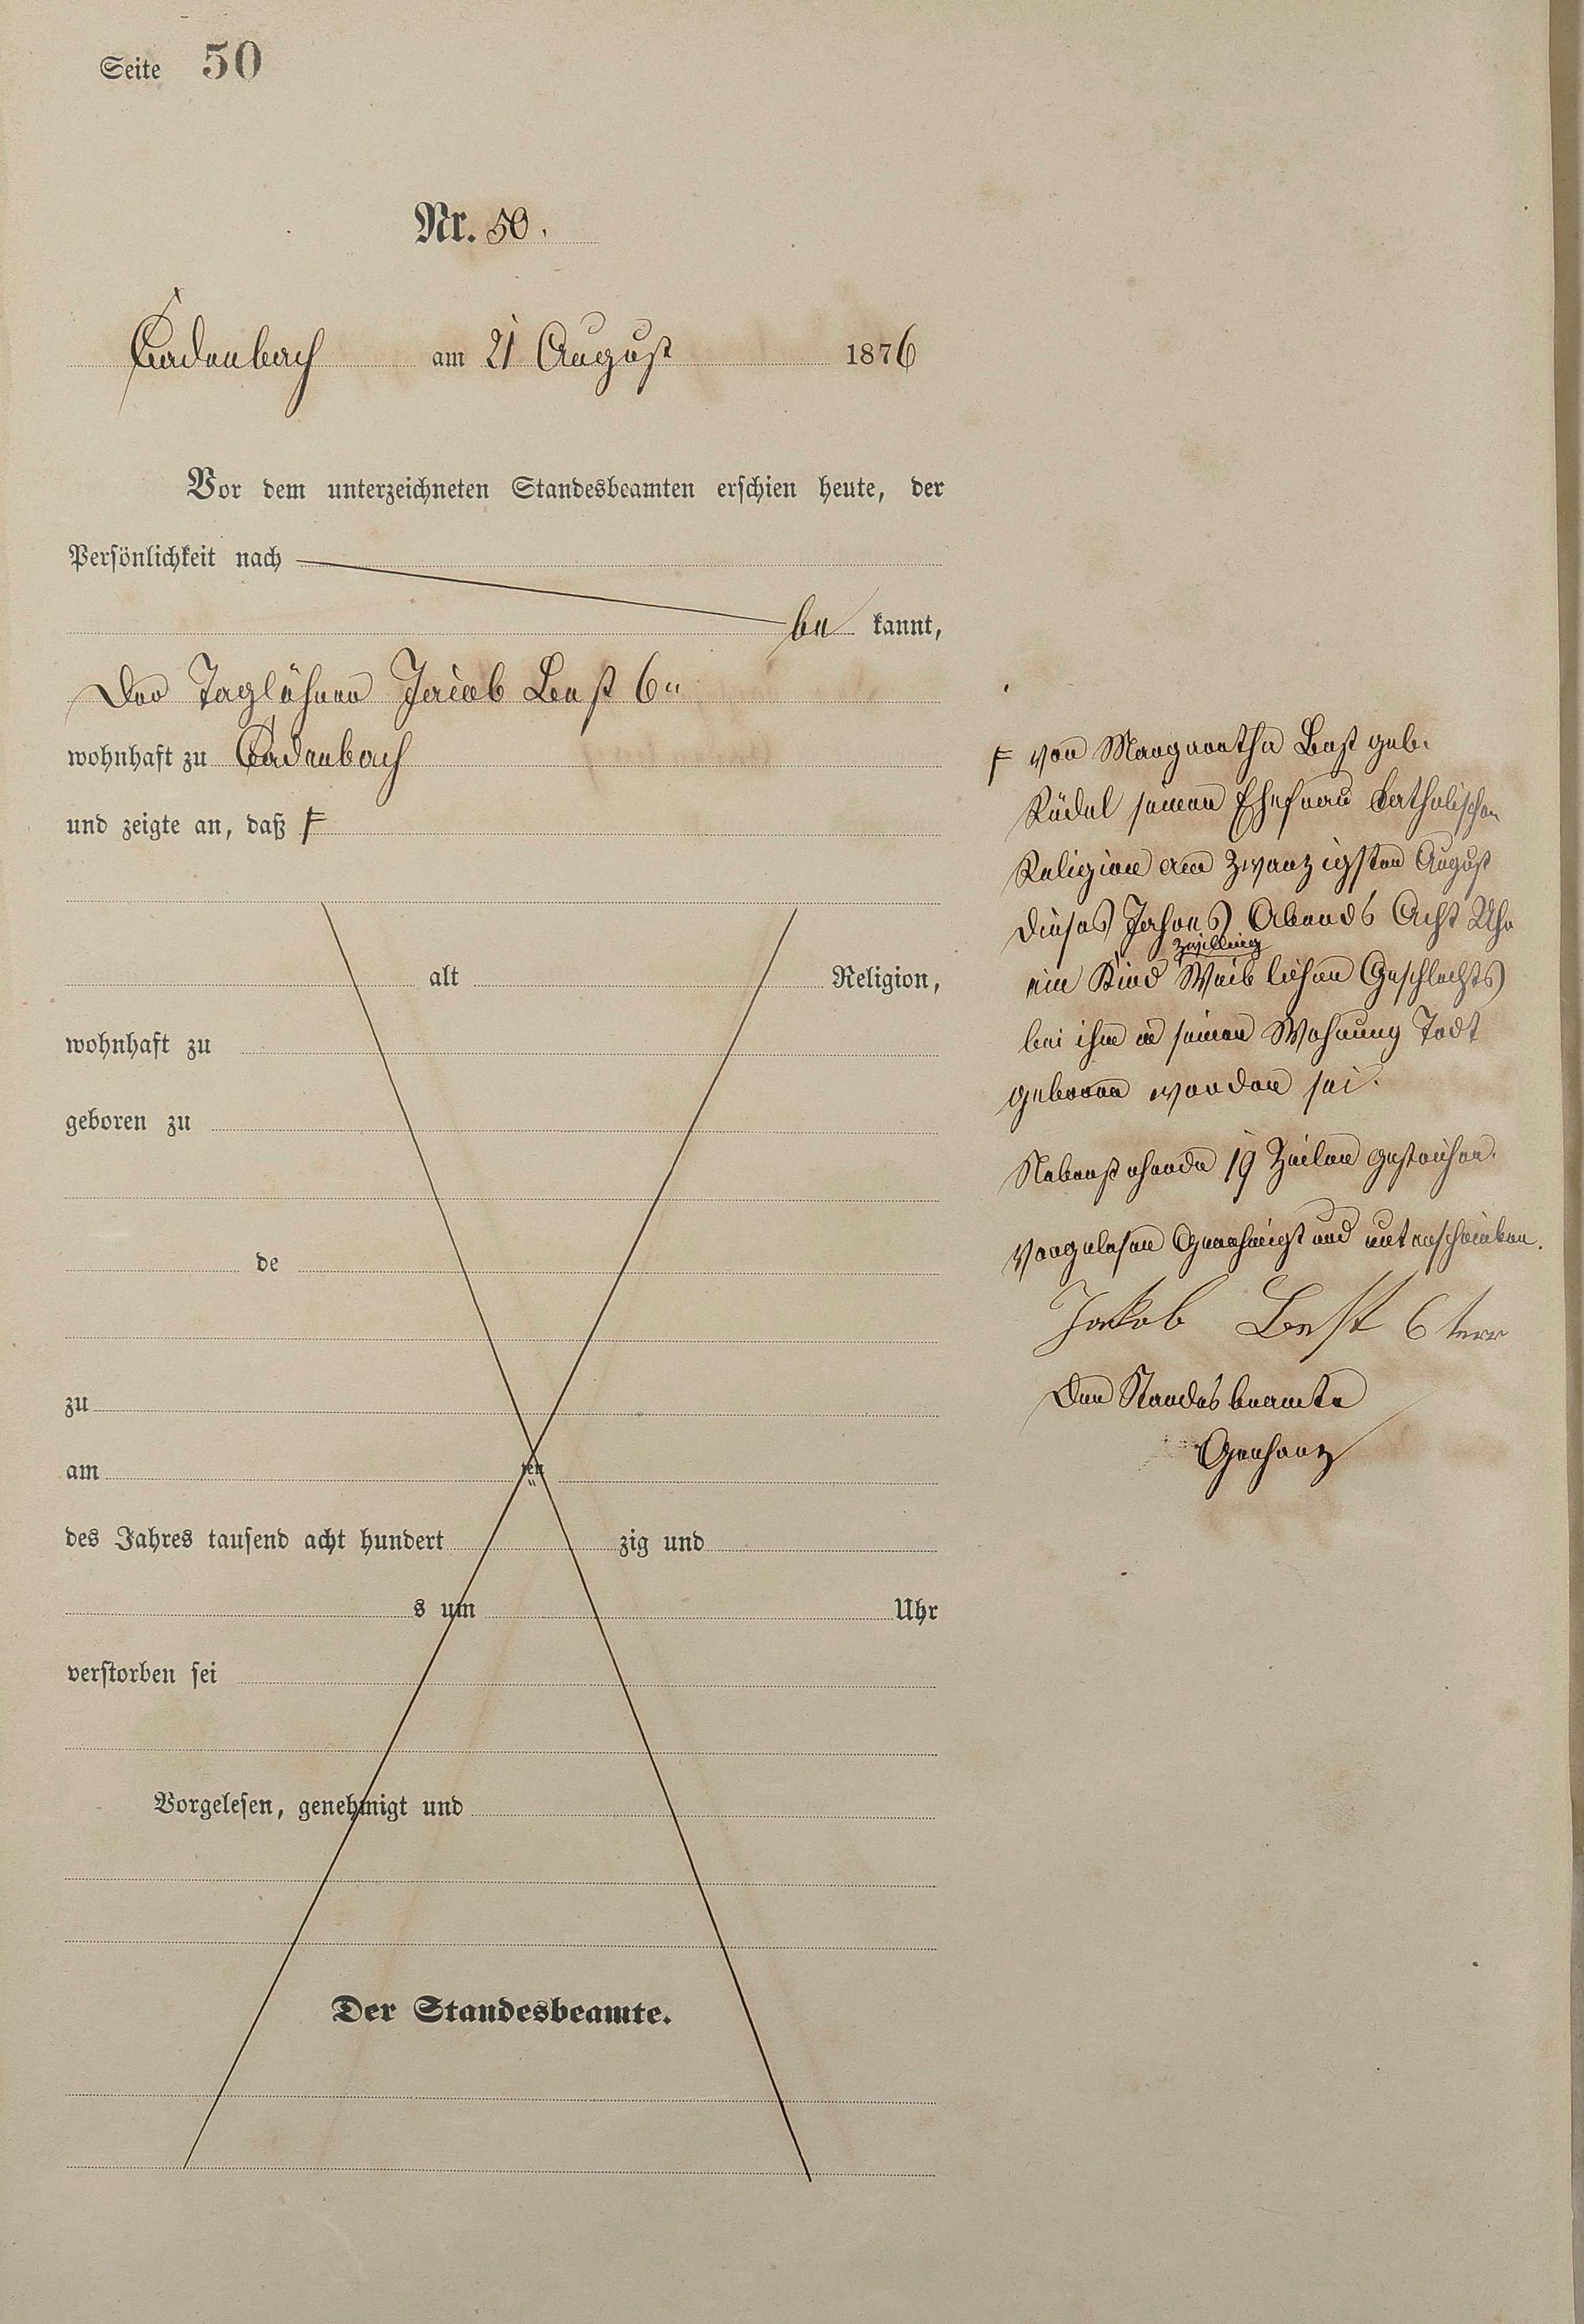 Seite 50
Nr. 50.
Cadenbach am 21 August 1876
Vor dem unterzeichneten Standesbeamten erschien heute, der
Persönlichkeit nach
be kannt,
Der Taglöhner Jacob Best 6ti
wohnhaft zu Cadenbach
und zeigte an, daß F
alt Religion,
wohnhaft zu
geboren zu
de
zu
am ten
des Jahres tausend acht hundert zig und
s um Uhr
verstorben sei
Vorgelesen, genehmigt und
Der Standesbeamte.
F von Margaretha Best geb.
Rüdel seiner Ehefrau Katholischer
Religion am zwanzigsten August
dieses Jahres Abends Acht Uhr
Zwilling
ein Kind Weiblichen Geschlechts
bei ihm in seiner Wohnung Todt
geboren worden sei.
Nebenstehende 19 Zeilen gestrichen.
Vorgelesen Genehmigt und unterschrieben.
Jakob Best 6 terr
Der Standesbeamte